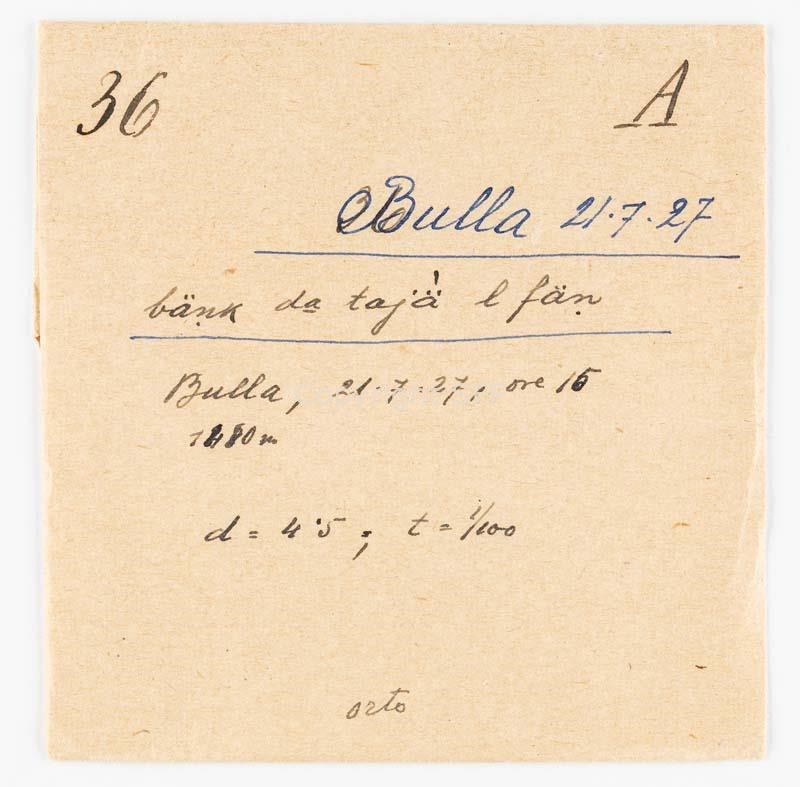 36 A
Bulla 21·7·27
bäṇk da tajä̀ l fäṇ
Bulla, 21·7·27, ore 15
1480 m
d = 4·5 ; t = 1/100
orto